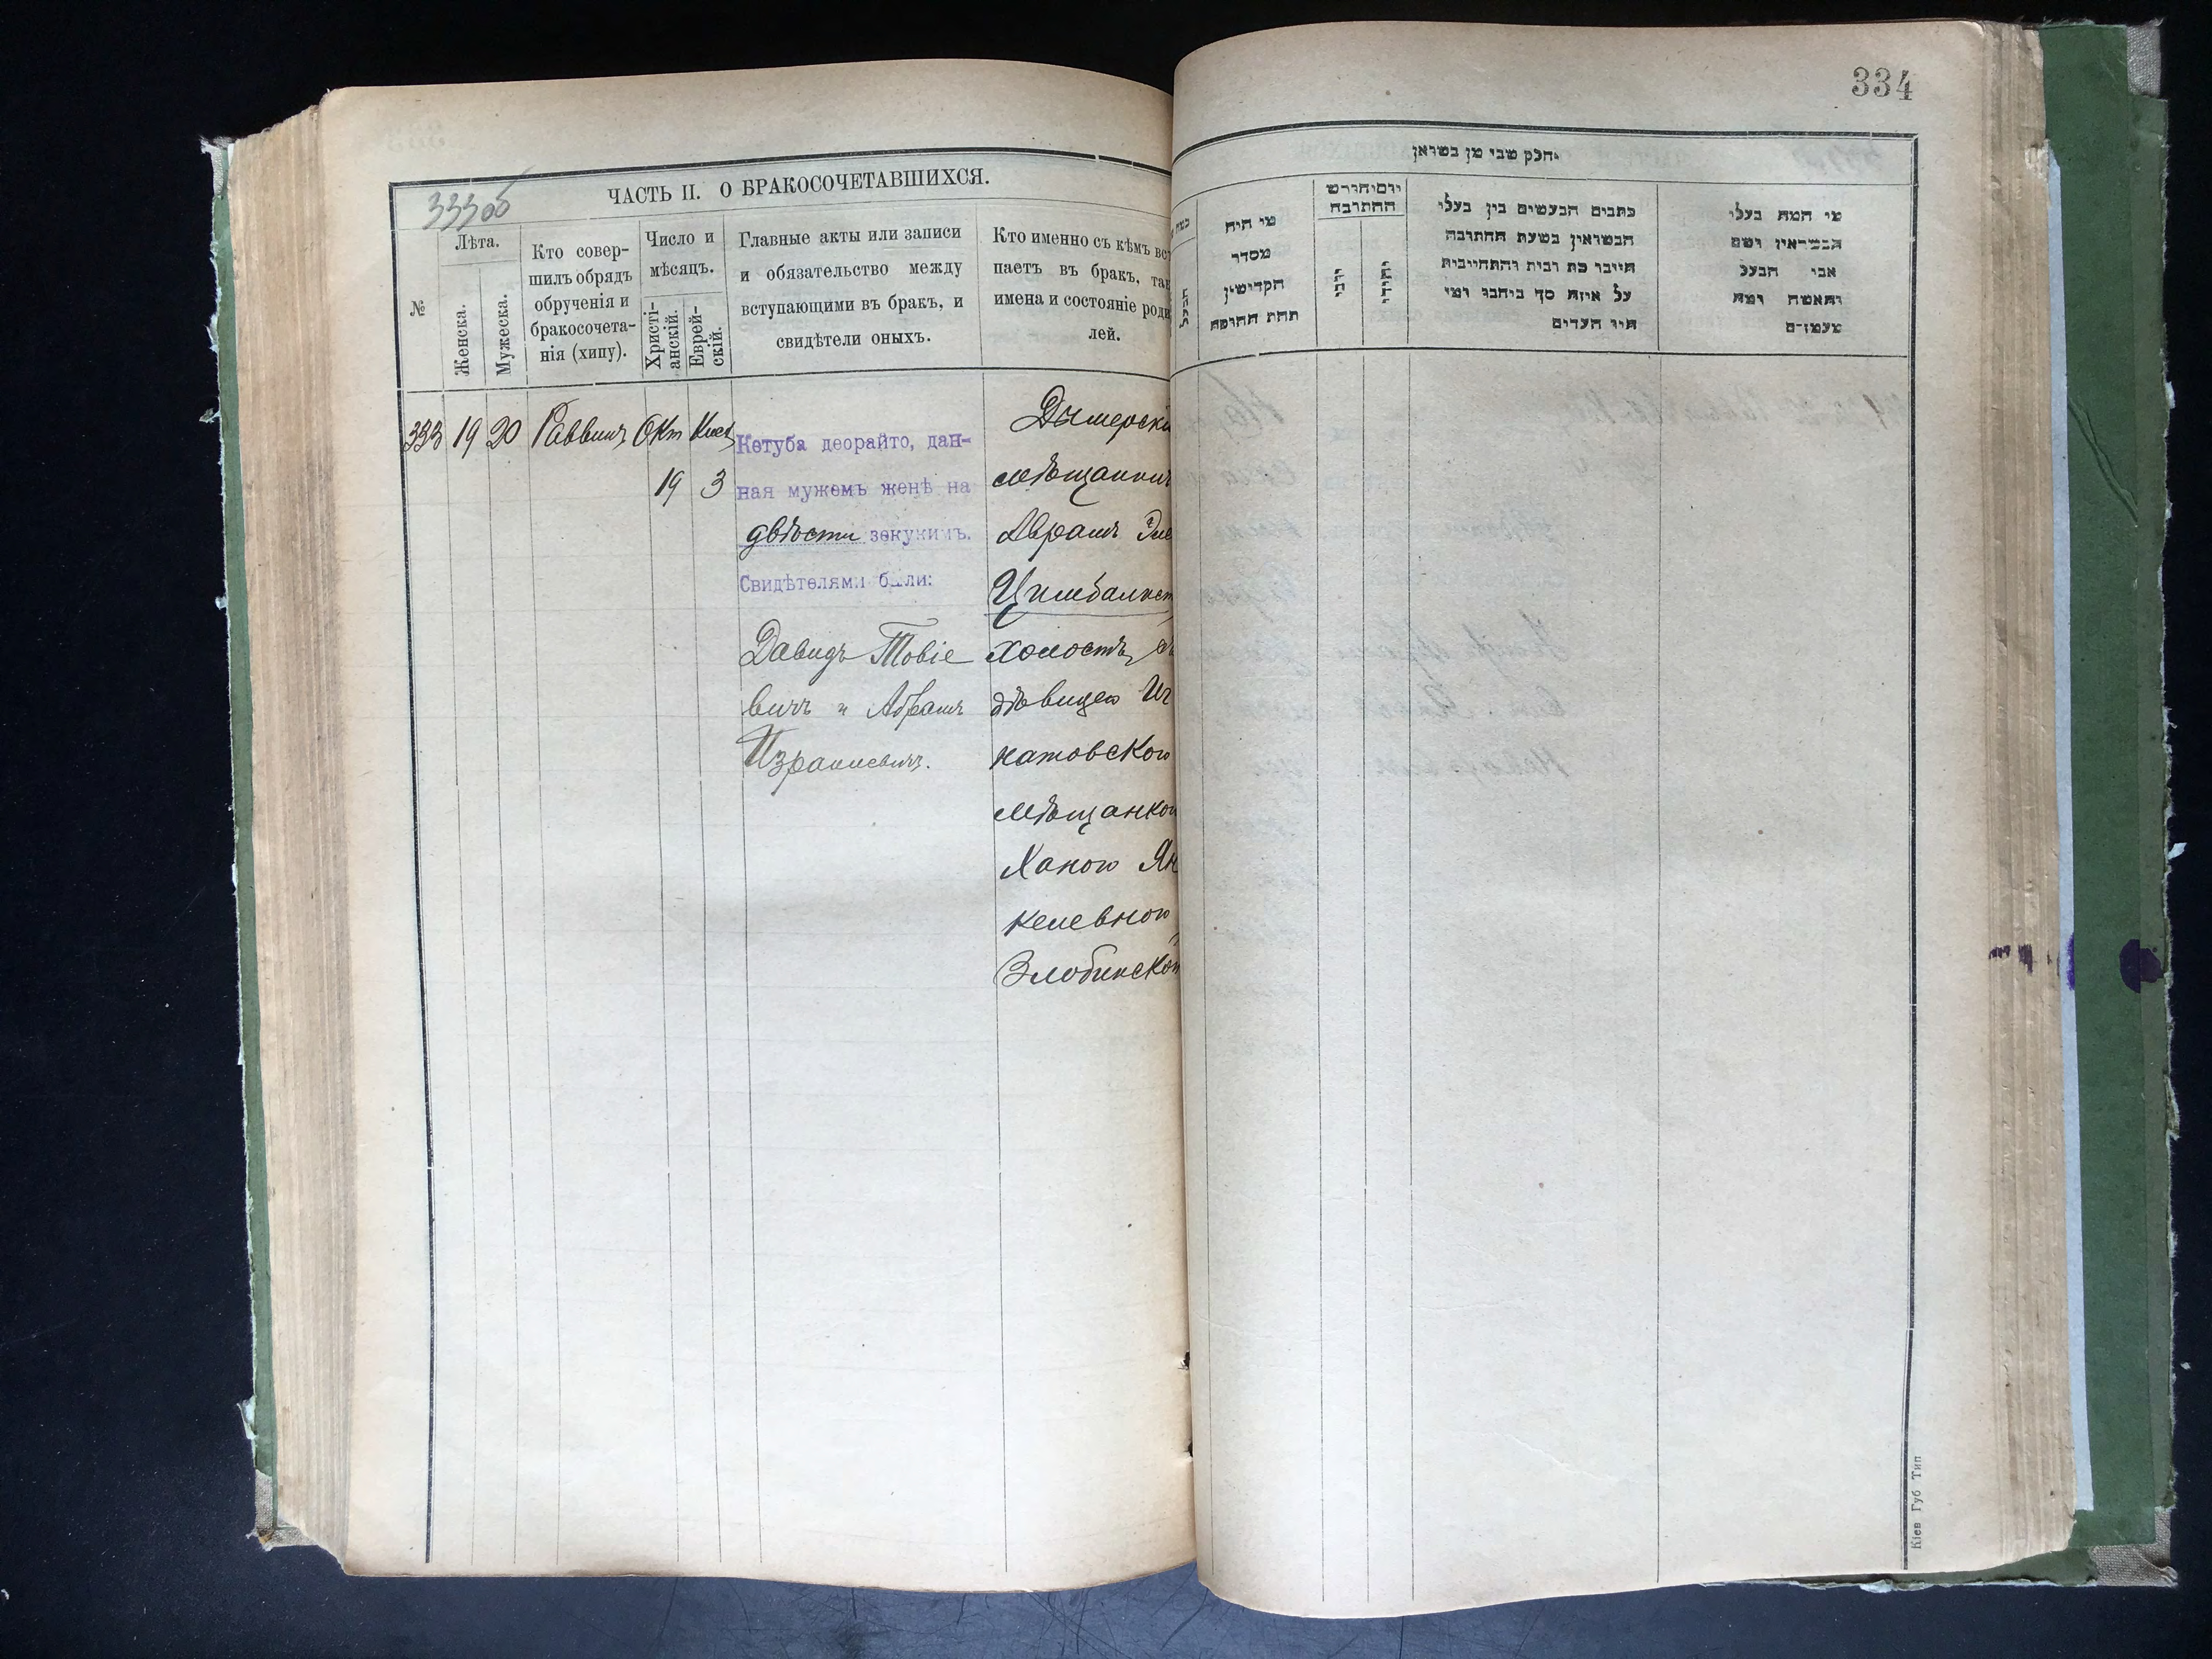 333об
ЧАСТЬ II. О БРАКОСОЧЕТАВШИХСЯ.
№
Лѣта.
Женска.
Мужеска.
Кто совер-
шилъ обрядъ
обрученія и
бракосочета-
нія (хипу).
Число и
мѣсяцъ.
Христі-
анскій.
Еврей-
скій.
Главные акты или записи
и обязательство между
вступающими въ бракъ, и
свидѣтели оныхъ.
Кто именно съ кѣмъ вст
паетъ въ бракъ, так
имена и состояніе роди
лей.
333 19 20 Раввинъ Окт
19 3
Кетуба деорайто, дан-
ная мужемъ женѣ на
двѣсти зекукимъ.
Свидѣтелями были:
Давидъ Товіе
вичъ и Абрамъ
Израилевичъ.
Дымерскі
мѣщанинъ
Аврамъ
Цимбалист
холостъ, съ
дѣвицею Иг
натовскою
мѣщанкою
Ханою Ян
келевною
Злобинской
334
חלק שני מן בשואין
מי היה
מסדר
הקדושין
תחת החופה
יום וחורש
החתונה
יהודי
כתבים הנעשים בין בעלי
הנשואין בשעת החתונה
על איזה סך
היו העדים
מי המה בעלי
הנשואין ושם
אבי הבעל
והאשה
Кіев Губ Тип